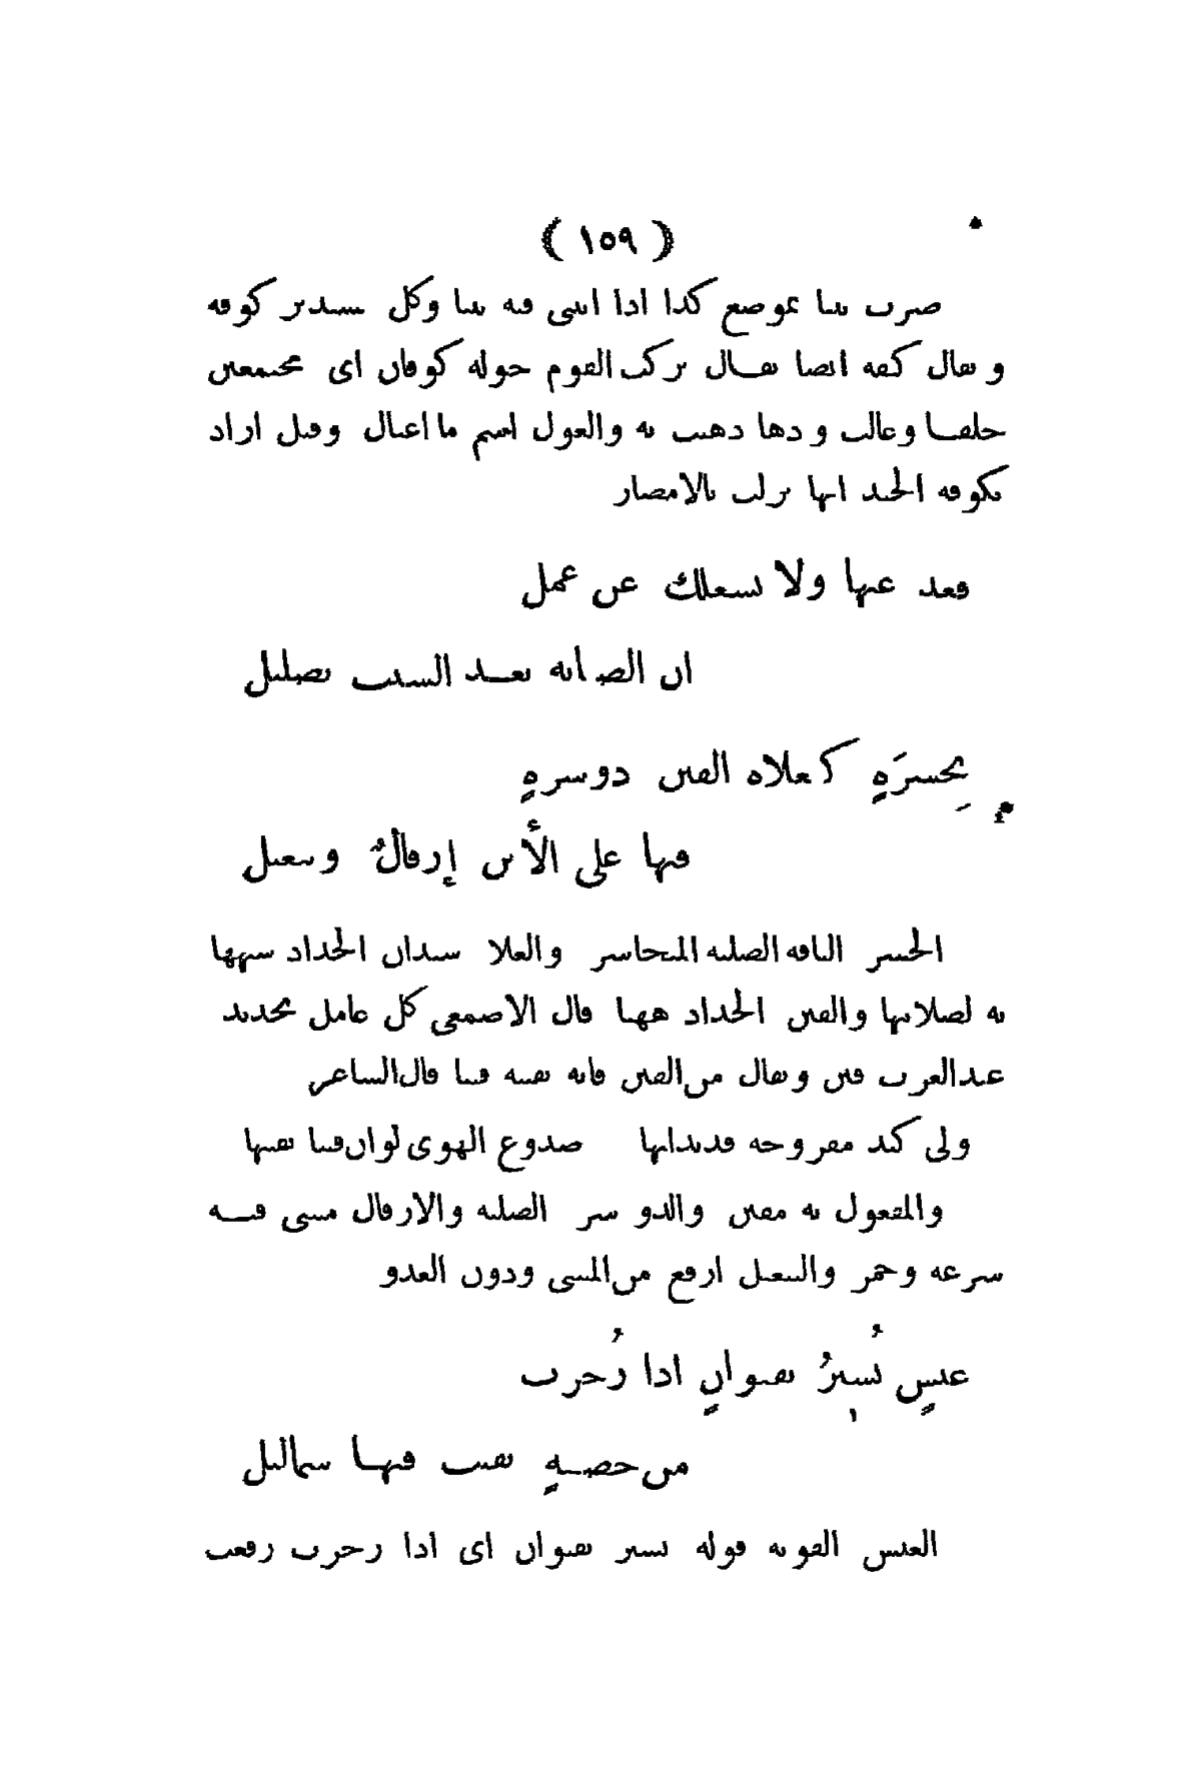 ( ١٥٩ )
ضربت بيتا بموضع كذا اذا ابتنى فيه بيتا وكل مستدير كوفة
ويقال كيفة ايضا يقال تركت القوم حوله كوفان اى مجتمعين
حلقا وغالت ودها ذهبت به والغول اسم ما اغتال وقيل اراد
بكوفة الجند انها نزلت بالامصار
فعد عنها ولا تشغلك عن عمل
ان الصبابة بعد الشيب تضليل
بِجسرَةٍ كعلاة القين دوسرةٍ
فيها على الأَين إرقالٌ وتبغيل
الجسر الناقة الصلبة المتجاسر والعلا سندان الحداد شبهها
به لصلابتها والقين الحداد ههنا قال الاصمعى كل عامل بحديد
عند العرب قين ويقال من القين قانه يقينه قينا قال الشاعر
ولى كبد مقروحة قد بدا بها صدوع الهوى لو ان قينا يقينها
والمفعول به مقين والدو سر الصلبة والارقال مشى فيه
سرعة وجمز والتبغيل ارفع من المشى ودون العدو
عنسٍ تُشِيرُ بقنوانٍ اذا زُجرت
من خصبةٍ بقيت فيها شماليل
العنس القوية قوله تشير بقنوان اى اذا زجرت رفعت